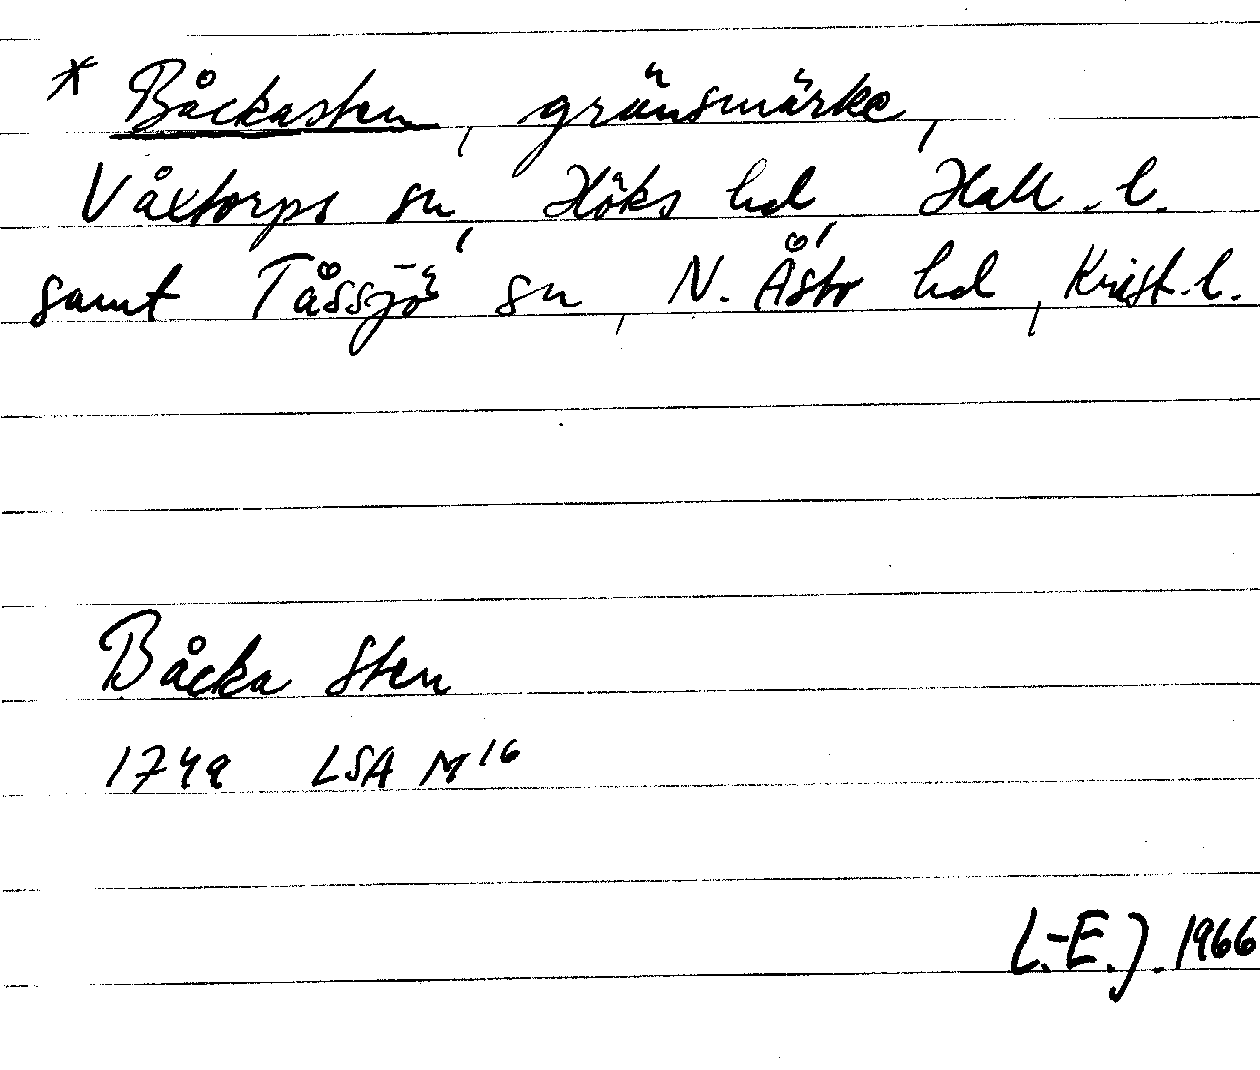 * Båckasten, gränsmärke,
Våxtorps sn, Höks hd, Hall. l.
samt Tåssjö sn, N. Åsbo hd, Krist. l.
Båcka Sten
1749 LSA M16
L.-E. J. 1966